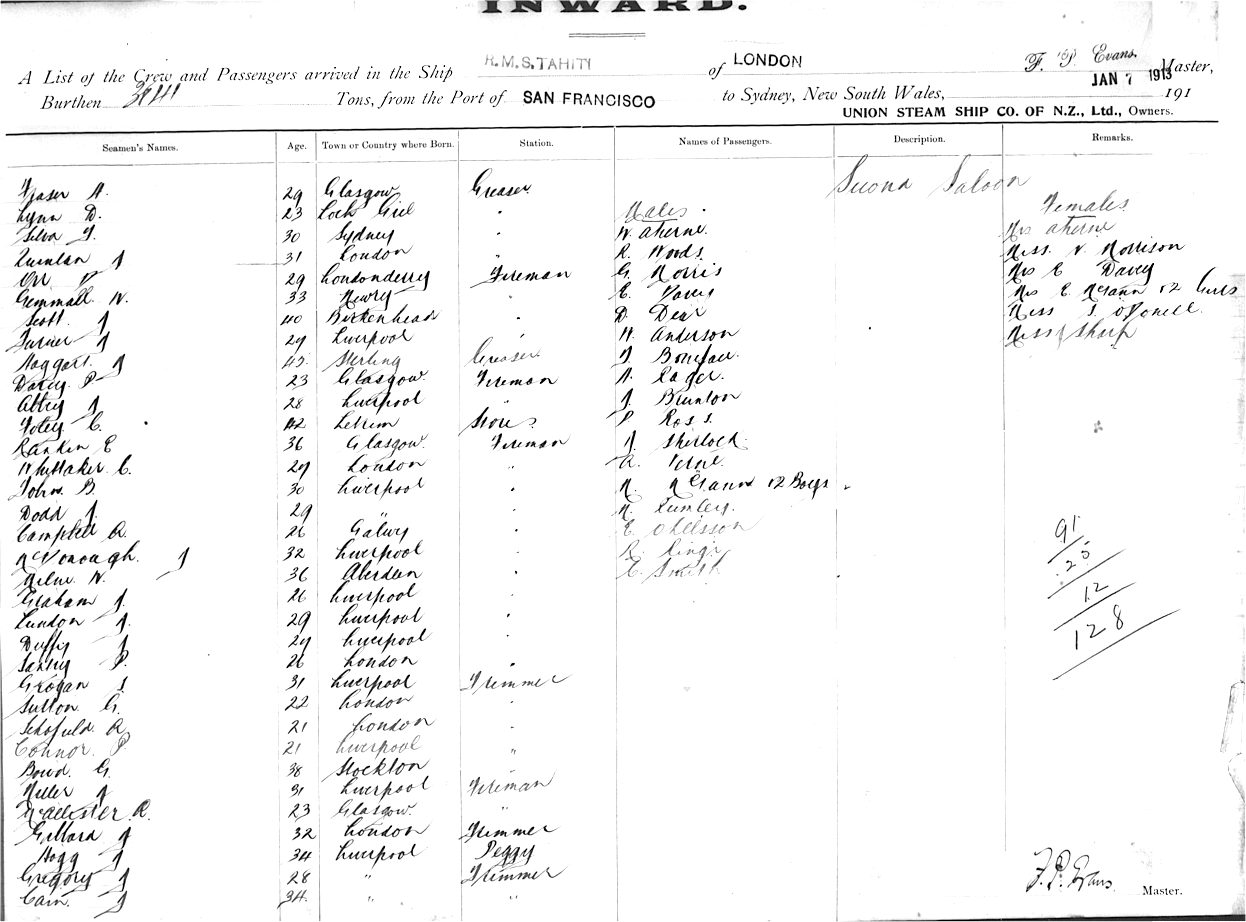 INWARD.
A List of the Crew and Passengers arrived in the Ship R.M.S. TAHITI of LONDON F. P. Evans. Master,
Burthen Tons, from the Port of SAN FRANCISCO to Sydney, New South Wales, JAN 7 1913 191
UNION STEAM SHIP CO. OF N.Z., Ltd., Owners.
Seamen's Names. Age. Town or Country where Born. Station. Names of Passengers. Description. Remarks.
Second Saloon
Fraser A. 29 Glasgow Greaser
Lynn D. 23 Males. Females
Silva 30 Sydney " W. Aherne Mrs Aherne
Quinlan J 31 London " R. Woods Miss Morrison
Orr 29 Londonderry Fireman G. Norris Mrs E Davey
Gemmall W. 33 Newry " E. Davey Mrs E. McGann & 2 Girls
Scott J 40 Birkenhead " D. Dear Miss O'Donell
Turner J 29 Liverpool " W. Anderson Miss J Sharp
Haggart J 45 Sterling Greaser
Darcy P 23 Glasgow. Fireman
Abbey J 28 Liverpool " J Brunton
Foley C. 42 Letrim Stores P Ross
Rankin E 36 Glasgow. Fireman J Sherlock
Whittaker C. 29 London " Verne
Johns B. 30 Liverpool " McGann & 2 Boys
Dodd J. 29 " "
Campbell R. 26 Galwy " E Ohlsson
McDonough. J 32 Liverpool "
Milne W. 36 Aberdeen " E. Smith
Graham J. 26 Liverpool "
Lundon J. 29 Liverpool "
Duffy J 29 Liverpool "
P. 26 London "
Grogan 31 Liverpool Trimmer
Sutton G. 22 London "
Schofield R 21 London "
Connor. P 21 Liverpool "
Bowd. G. 38 Stockton "
Miller J 31 Liverpool Fireman
McAllester R. 23 Glasgow. "
Gillard J 32 London Trimmer
Hogg J 34 Liverpool Peggy
Gregory J 28 " Trimmer
Cain. J 34. " "
91
25
12
128
F. P. Evans Master.